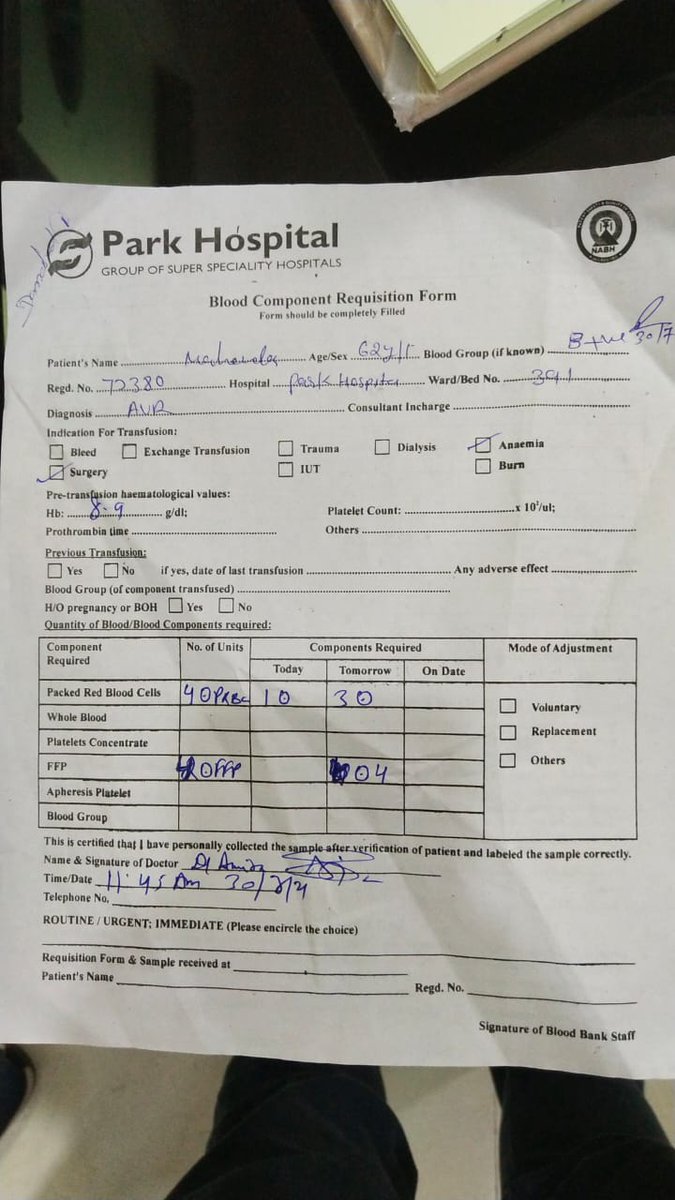 Park Hospital
GROUP OF SUPER SPECIALITY HOSPITALS
NABH
Blood Component Requisition Form
Form should be completely Filled
30/7
Patient's Name Age/Sex 62Y/F Blood Group (if known) B+ve
Regd. No. 72380 Hospital Park Hospital Ward/Bed No. 391
Diagnosis AVR Consultant Incharge
Indication For Transfusion:
Bleed Exchange Transfusion Trauma Dialysis Anaemia
Surgery IUT Burn
Pre-transfusion haematological values:
Hb: 8.9 g/dl; Platelet Count: x 10³/ul;
Prothrombin time Others
Previous Transfusion:
Yes No if yes, date of last transfusion Any adverse effect
Blood Group (of component transfused)
H/O pregnancy or BOH Yes No
Quantity of Blood/Blood Components required:
Component Required No. of Units Components Required Mode of Adjustment
Today Tomorrow On Date
Packed Red Blood Cells 40PRBC 10 30
Voluntary
Whole Blood
Replacement
Platelets Concentrate
Others
FFP FFP 04
Apheresis Platelet
Blood Group
This is certified that I have personally collected the sample after verification of patient and labeled the sample correctly.
Name & Signature of Doctor Dr
Time/Date 11:45 Am
Telephone No.
ROUTINE / URGENT; IMMEDIATE (Please encircle the choice)
Requisition Form & Sample received at
Patient's Name Regd. No.
Signature of Blood Bank Staff